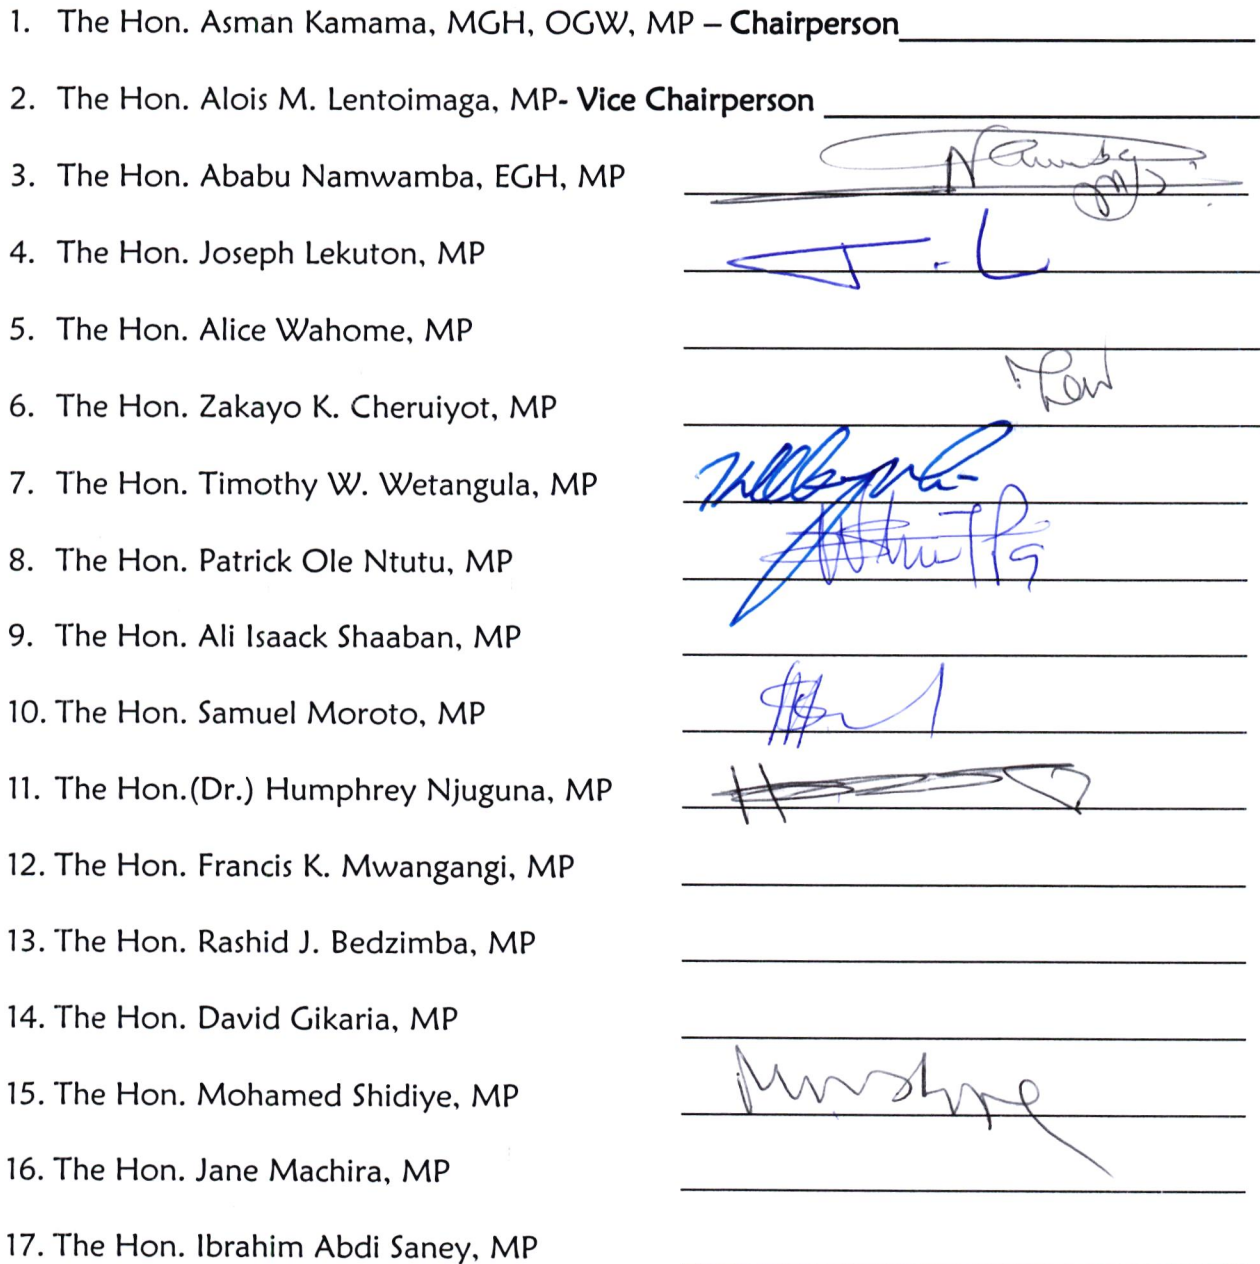 1. The Hon. Asman Kamama, MGH, OGW, MP – Chairperson
2. The Hon. Alois M. Lentoimaga, MP- Vice Chairperson
3. The Hon. Ababu Namwamba, EGH, MP
4. The Hon. Joseph Lekuton, MP J.L
5. The Hon. Alice Wahome, MP
6. The Hon. Zakayo K. Cheruiyot, MP
7. The Hon. Timothy W. Wetangula, MP
8. The Hon. Patrick Ole Ntutu, MP
9. The Hon. Ali Isaack Shaaban, MP
10. The Hon. Samuel Moroto, MP
11. The Hon.(Dr.) Humphrey Njuguna, MP
12. The Hon. Francis K. Mwangangi, MP
13. The Hon. Rashid J. Bedzimba, MP
14. The Hon. David Gikaria, MP
15. The Hon. Mohamed Shidiye, MP
16. The Hon. Jane Machira, MP
17. The Hon. Ibrahim Abdi Saney, MP